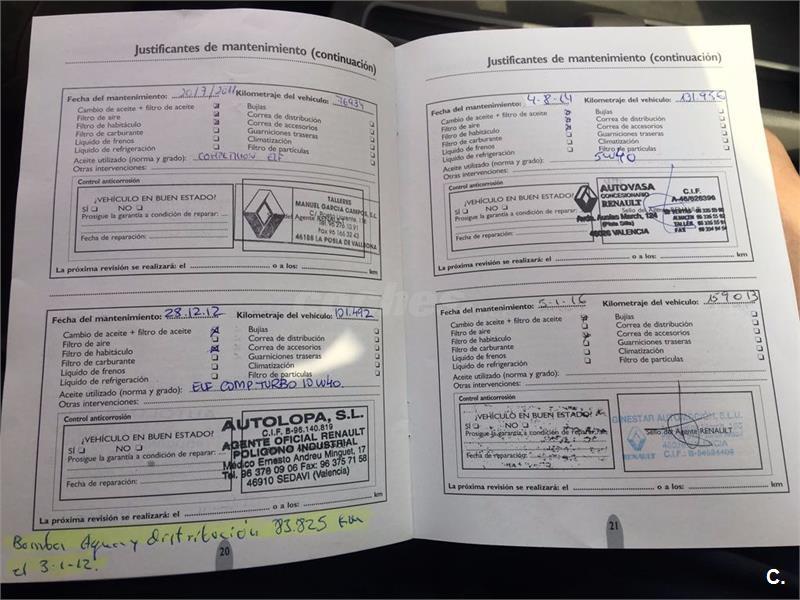 Justificantes de mantenimiento (continuación)
Fecha del mantenimiento: 20/7/2011 Kilometraje del vehículo: 76934
Cambio de aceite + filtro de aceite
Filtro de aire
Filtro de habitáculo
Filtro de carburante
Líquido de frenos
Líquido de refrigeración
Bujías
Correa de distribución
Correa de accesorios
Guarniciones traseras
Climatización
Filtro de partículas
Aceite utilizado (norma y grado): COMPETITION ELF
Otras intervenciones:
Control anticorrosión
¿VEHÍCULO EN BUEN ESTADO?
SÍ NO
Prosigue la garantía a condición de reparar:
Fecha de reparación:
TALLERES
MANUEL GARCIA CAMPOS, S.L.
46185 LA POBLA DE VALLBONA
La próxima revisión se realizará: el o a los: km
Fecha del mantenimiento: 28.12.12 Kilometraje del vehículo: 101.492
Cambio de aceite + filtro de aceite
Filtro de aire
Filtro de habitáculo
Filtro de carburante
Líquido de frenos
Líquido de refrigeración
Bujías
Correa de distribución
Correa de accesorios
Guarniciones traseras
Climatización
Filtro de partículas
Aceite utilizado (norma y grado): ELF COMP. TURBO 10W40
Otras intervenciones:
Control anticorrosión
¿VEHÍCULO EN BUEN ESTADO?
SÍ NO
Prosigue la garantía a condición de reparar:
Fecha de reparación:
AUTOLOPA, S.L.
C.I.F. B-96.140.819
AGENTE OFICIAL RENAULT
POLIGONO INDUSTRIAL
Médico Ernesto Andreu Minguet, 17
Tel. 96 376 09 06 Fax: 96 375 71 58
46910 SEDAVI (Valencia)
La próxima revisión se realizará: el o a los: km
Bomba Agua y distribución 83.825 km
el 3-1-12.
20
Justificantes de mantenimiento (continuación)
Fecha del mantenimiento: 4-8-14 Kilometraje del vehículo: 131.956
Cambio de aceite + filtro de aceite
Filtro de aire
Filtro de habitáculo
Filtro de carburante
Líquido de frenos
Líquido de refrigeración
Bujías
Correa de distribución
Correa de accesorios
Guarniciones traseras
Climatización
Filtro de partículas
Aceite utilizado (norma y grado): 5W40
Otras intervenciones:
Control anticorrosión
¿VEHÍCULO EN BUEN ESTADO?
SÍ NO
Prosigue la garantía a condición de reparar:
Fecha de reparación:
AUTOVASA
CONCESIONARIO
RENAULT
Avda. Ausias March, 124
46026 VALENCIA
C.I.F.
A-46/828396
La próxima revisión se realizará: el o a los: km
Fecha del mantenimiento: 5-1-16 Kilometraje del vehículo: 159013
Cambio de aceite + filtro de aceite
Filtro de aire
Filtro de habitáculo
Filtro de carburante
Líquido de frenos
Líquido de refrigeración
Bujías
Correa de distribución
Correa de accesorios
Guarniciones traseras
Climatización
Filtro de partículas
Aceite utilizado (norma y grado):
Otras intervenciones:
Control anticorrosión
¿VEHÍCULO EN BUEN ESTADO?
SÍ NO
Prosigue la garantía a condición de reparar:
Fecha de reparación:
Sello del Agente RENAULT
RENAULT
La próxima revisión se realizará: el o a los: km
21
C.